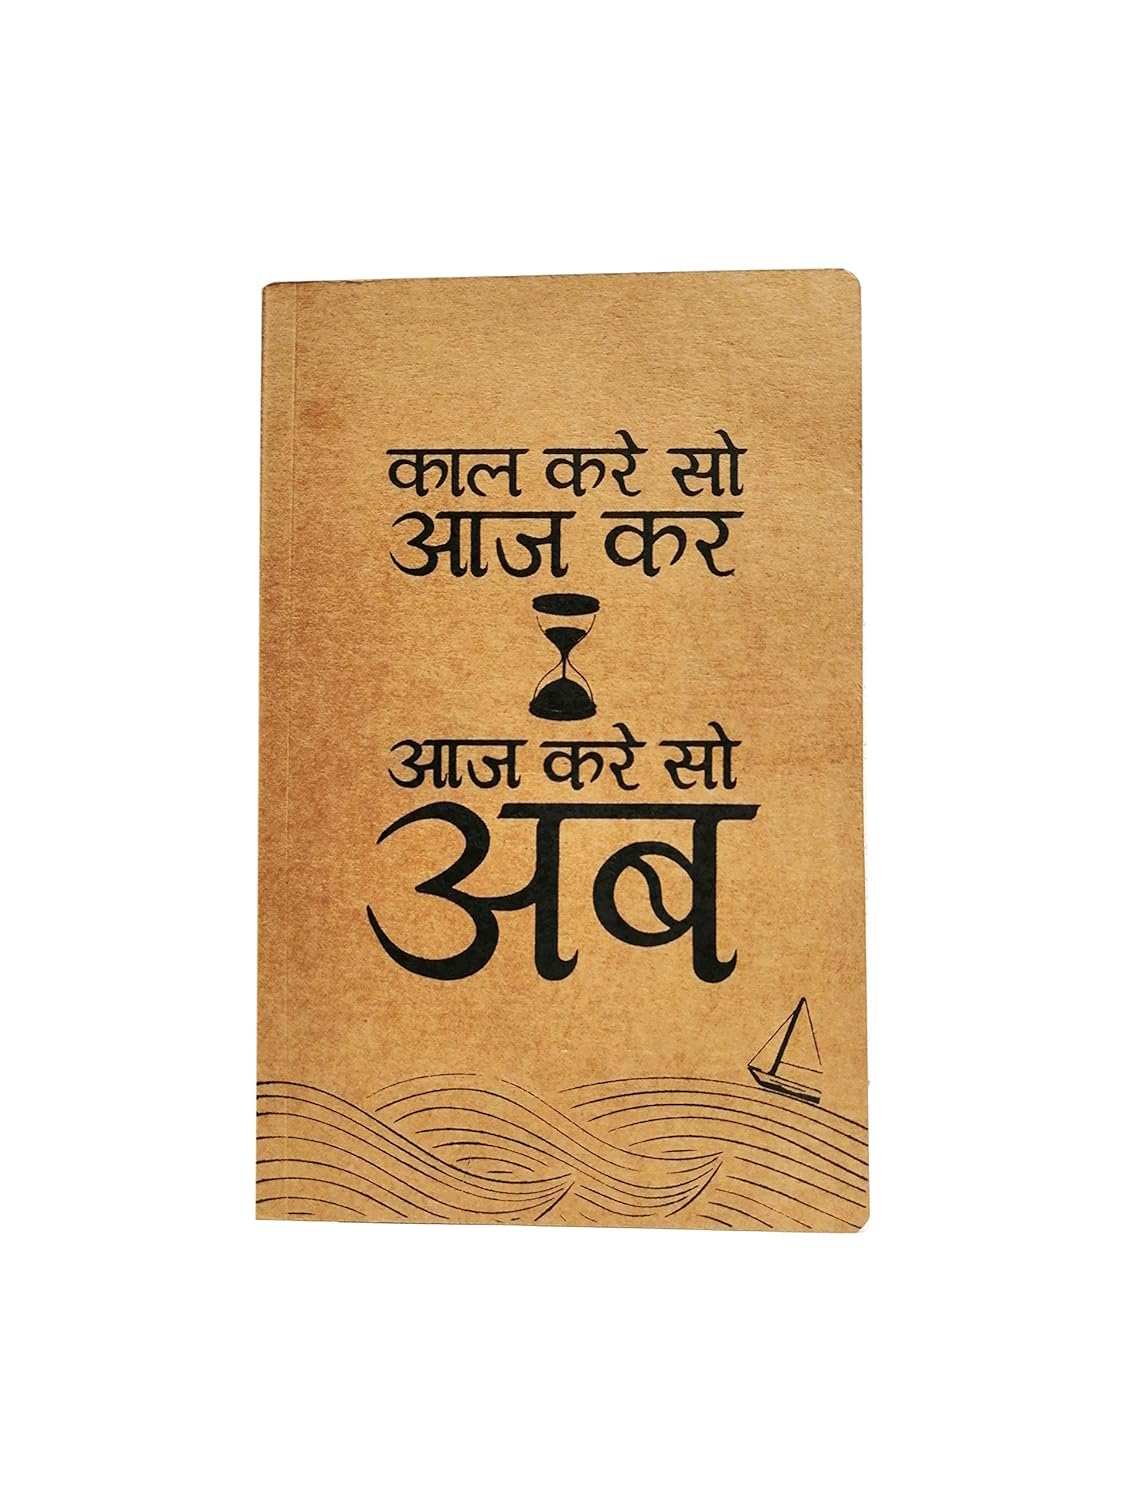 काल करे सो
आज कर
आज करे सो
अब